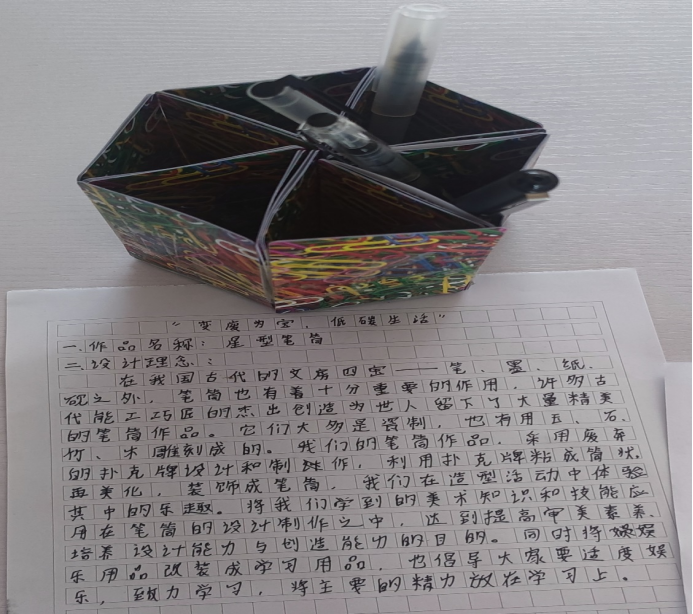 “变废为宝，低碳生活”
一.作品名称：星型笔筒
二.设计理念：
在我国古代的文房四宝——笔、墨、纸、
砚之外，笔筒也有着十分重要的作用，许多古
代能工巧匠的杰出创造为世人留下了大量精美
的笔筒作品。它们大多是瓷制，也有用玉、石、
竹、木雕刻成的。我们的笔筒作品，采用废弃
的扑克牌设计和制作，利用扑克牌粘成筒状，
再美化，装饰成笔筒，我们在造型活动中体验
其中的乐趣。将我们学到的美术知识和技能应
用在笔筒的设计制作之中，达到提高审美素养、
培养设计能力与创造能力的目的。同时将娱
乐用品改装成学习用品，也倡导大家要适度娱
乐，致力学习，将主要的精力放在学习上。